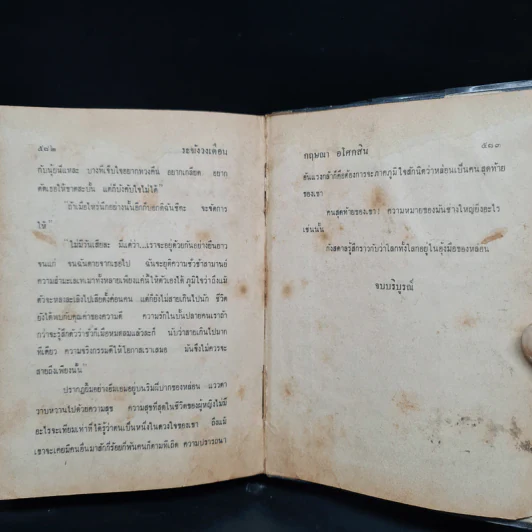 ๕๘๒ ระฆังวงเดือน
กับนุ้ยนี่แหละ บางทีเจ็บใจอยากทวงคืน อยากเกลียด อยาก
ตัดเธอให้ขาดสะบั้น แต่ก็บังคับใจไม่ได้"
"ถ้าเมื่อไหร่นึกอย่างนั้นอีกก็บอกดิฉันซีคะ จะจัดการ
ให้"
"ไม่มีวันเสียละ มีแต่ว่า...เราจะอยู่ด้วยกันอย่างยืนยาว
จนแก่ จนฉันตายจากเธอไป ฉันจะยุติความชั่วช้าสามานย์
ความสำมะเลเทเมาทั้งหลายเพียงแค่นี้ให้ตัวเองได้ ภูมิใจว่าถึงแม้
ตัวจะหลงละเลิงไปเสียตั้งค่อนคน แต่ก็ยังไม่สายเกินไปนัก ชีวิต
ยังได้พบกับคุณค่าของความดี ความรักในบั้นปลายคนเราถ้า
กว่าจะรู้สึกตัวว่าชั่วก็เมื่อหมดลมแล้วละก็ นับว่าสายเกินไปมาก
ทีเดียว ความจริงกรรมดีให้โอกาสเราเสมอ มันจึงไม่ควรจะ
สายถึงเพียงนั้น"
ปรากฏยิ้มอย่างยิ้มเยมอยู่บนริมฝีปากของหล่อน แววตา
วาบหวานไปด้วยความสุข ความสุขที่สุดในชีวิตของผู้หญิงไม่มี
อะไรจะเทียมเท่าที่ได้รู้ว่าตนเป็นหนึ่งในดวงใจของเขา ถึงแม้
เขาจะเคยมีคนอื่นมาสักกี่ร้อยกี่พันคนก็ตามทีเถิด ความปรารถนา
กฤษณา อโศกสิน ๕๘๓
อันแรงกล้าก็คือต้องการจะภาคภูมิใจสักนิดว่าหล่อนเป็นคนสุดท้าย
ของเขา
คนสุดท้ายของเขา! ความหมายของมันช่างใหญ่ยิ่งอะไร
เช่นนั้น
กังสดาลรู้สึกราวกับว่าโลกทั้งโลกอยู่ในอุ้งมือของหล่อน
จบบริบูรณ์